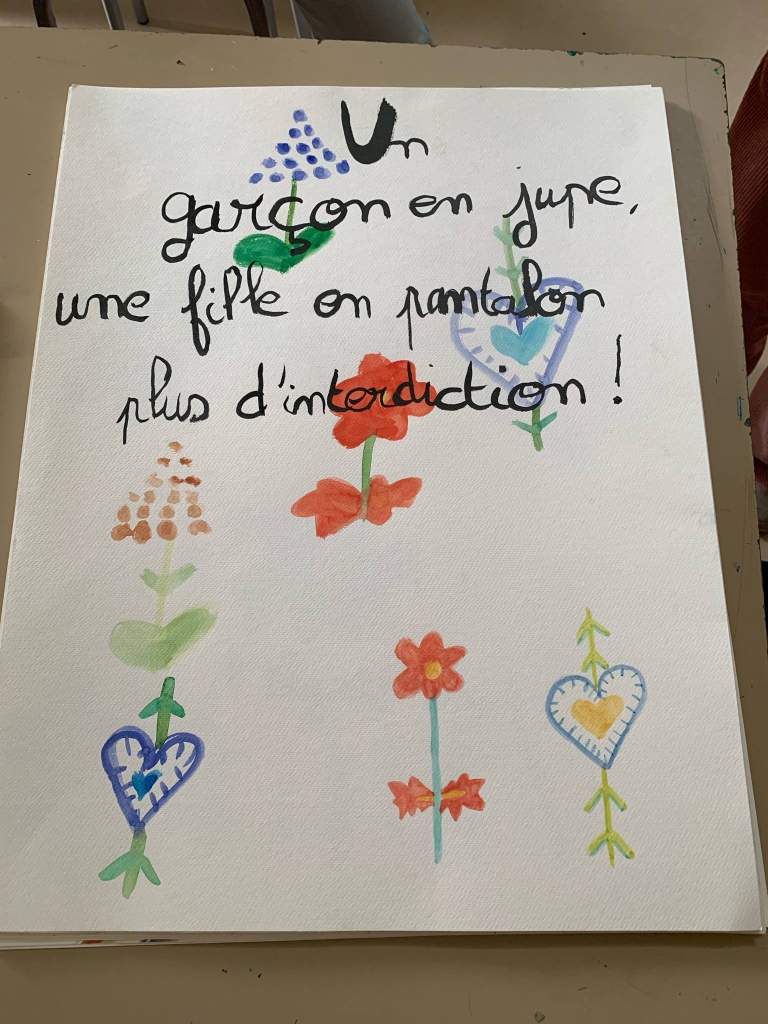 Un
garçon en jupe,
une fille en pantalon
plus d'interdiction !